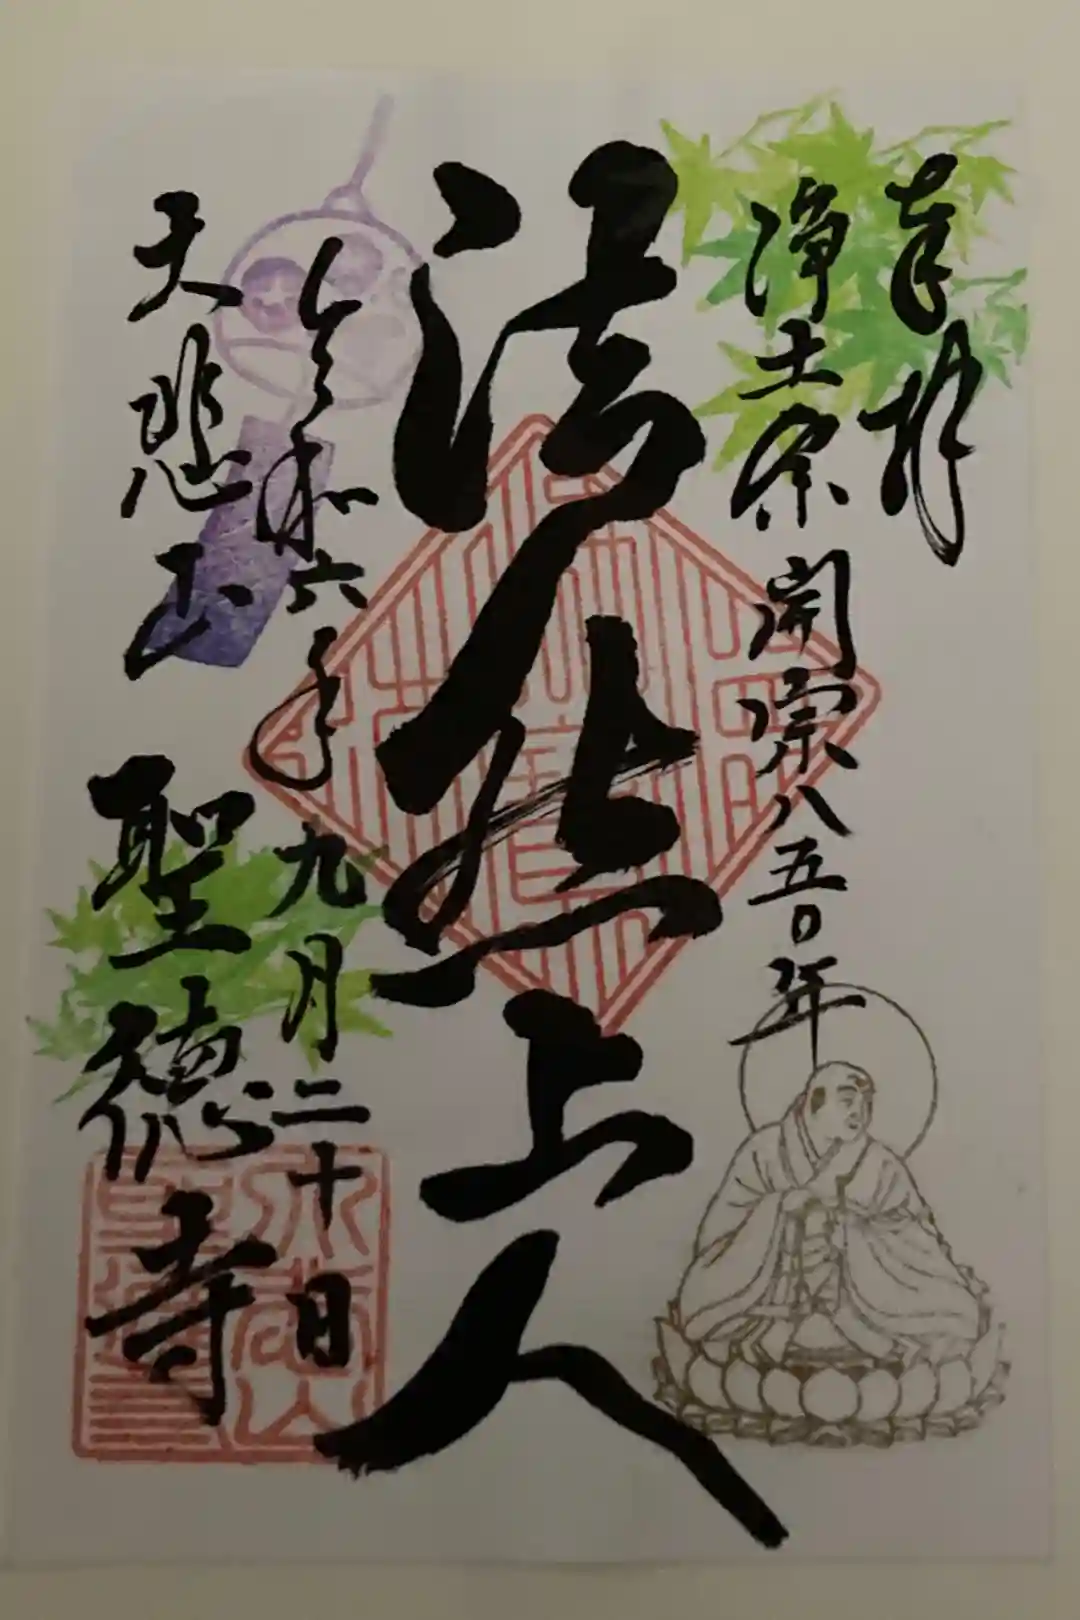 奉拝
浄土宗開宗八五〇年
法然上人
令和六年九月二十日
大悲山
聖徳寺